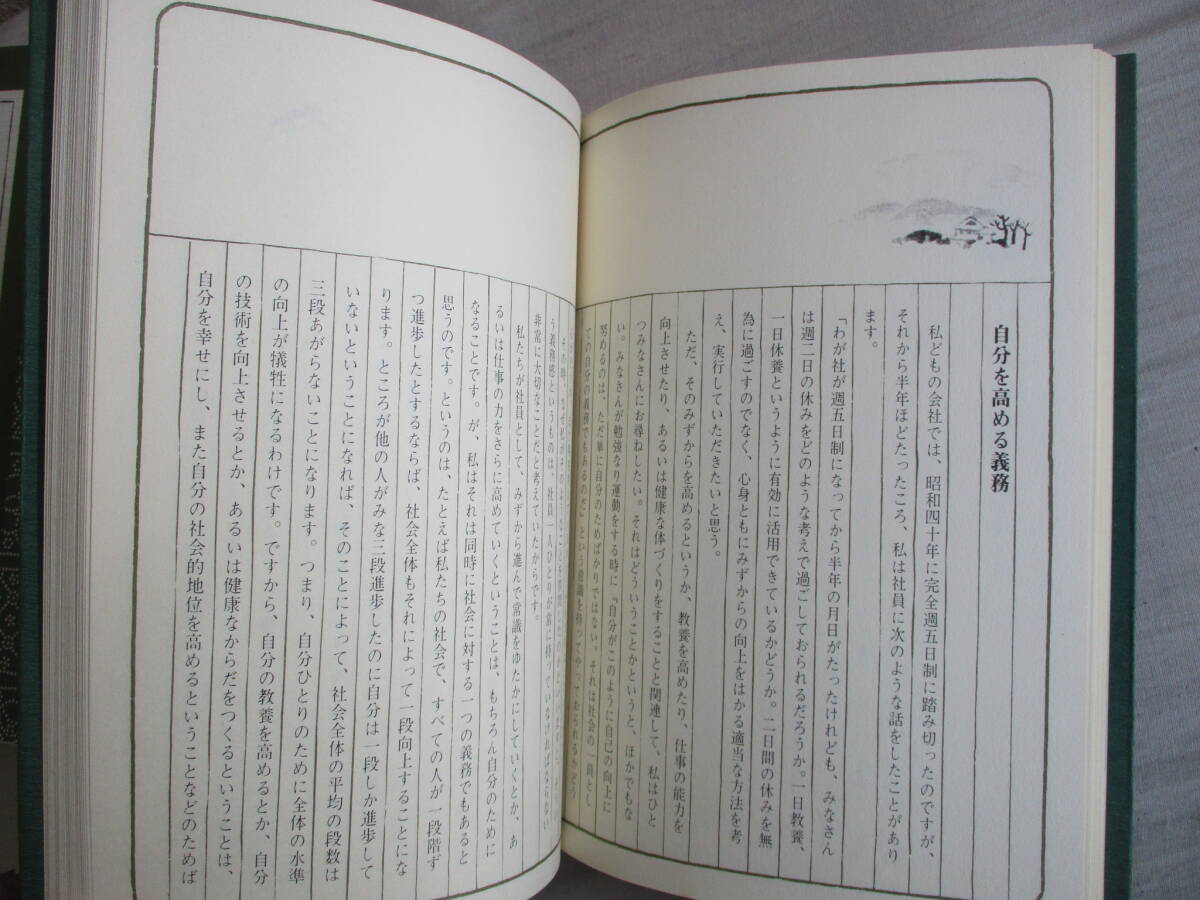 自分を高める義務
私どもの会社では、昭和四十年に完全週五日制に踏み切ったのですが、
それから半年ほどたったころ、私は社員に次のような話をしたことがあり
ます。
「わが社が週五日制になってから半年の月日がたったけれども、みなさん
は週二日の休みをどのような考えで過ごしておられるだろうか。一日教養、
一日休養というように有効に活用できているかどうか。二日間の休みを無
為に過ごすのでなく、心身ともにみずからの向上をはかる適当な方法を考
え、実行していただきたいと思う。
ただ、そのみずからを高めるというか、教養を高めたり、仕事の能力を
向上させたり、あるいは健康な体づくりをすることと関連して、私はひと
つみなさんにお尋ねしたい。それはどういうことかというと、ほかでもな
い。みなさんが勉強なり運動をする時に『自分がこのように自己の向上に
努めるのは、ただ単に自分のためばかりではない。それは社会の一員とし
ての自分の義務でもあるのだ』という意識を持ってやっておられるかどう
その時、なぜ私がそのようなことを
う義務感というものは、社員一人ひとりが常に持っていなければならない
非常に大切なことだと考えていたからです。
私たちが社員として、みずから進んで常識をゆたかにしていくとか、あ
るいは仕事の力をさらに高めていくということは、もちろん自分のために
なることです。が、私はそれは同時に社会に対する一つの義務でもあると
思うのです。というのは、たとえば私たちの社会で、すべての人が一段階ず
つ進歩したとするならば、社会全体もそれによって一段向上することにな
ります。ところが他の人がみな三段進歩したのに自分は一段しか進歩して
いないということになれば、そのことによって、社会全体の平均の段数は
三段あがらないことになります。つまり、自分ひとりのために全体の水準
の向上が犠牲になるわけです。ですから、自分の教養を高めるとか、自分
の技術を向上させるとか、あるいは健康なからだをつくるということは、
自分を幸せにし、また自分の社会的地位を高めるということなどのためば